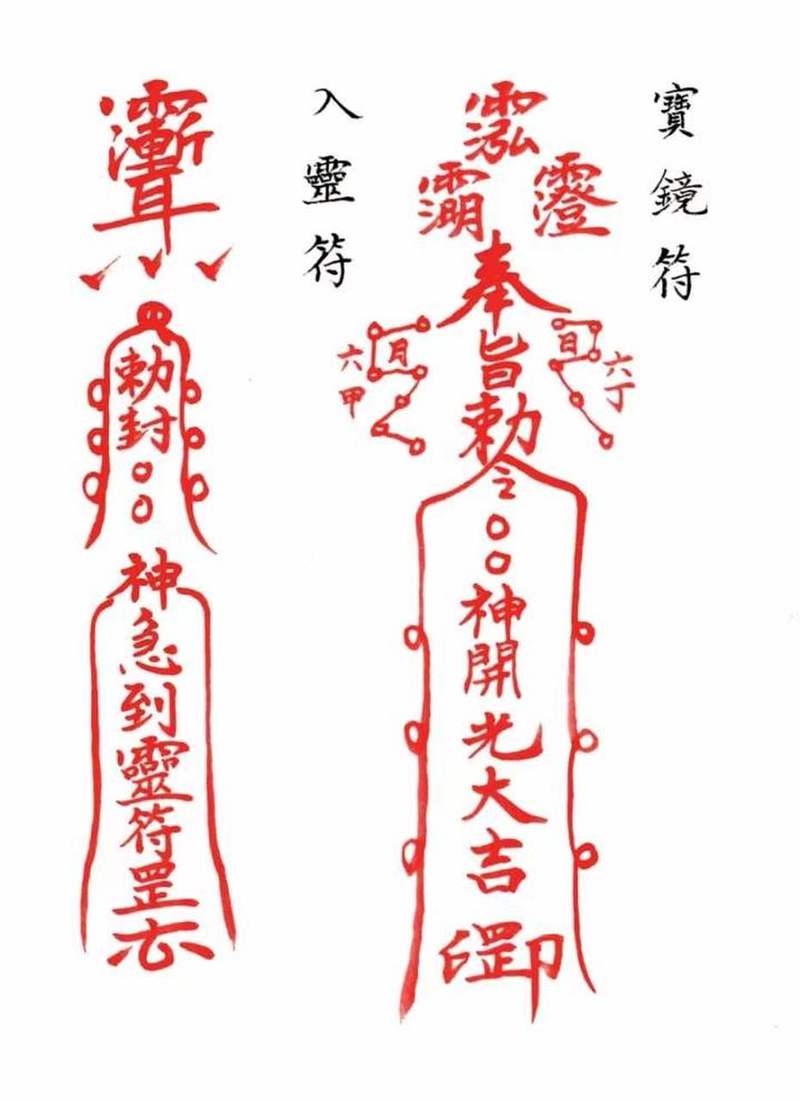 寶鏡符
奉旨勅令
六丁
日
六甲
月
〇〇神開光大吉
入靈符
勅封〇〇
神急到靈符罡